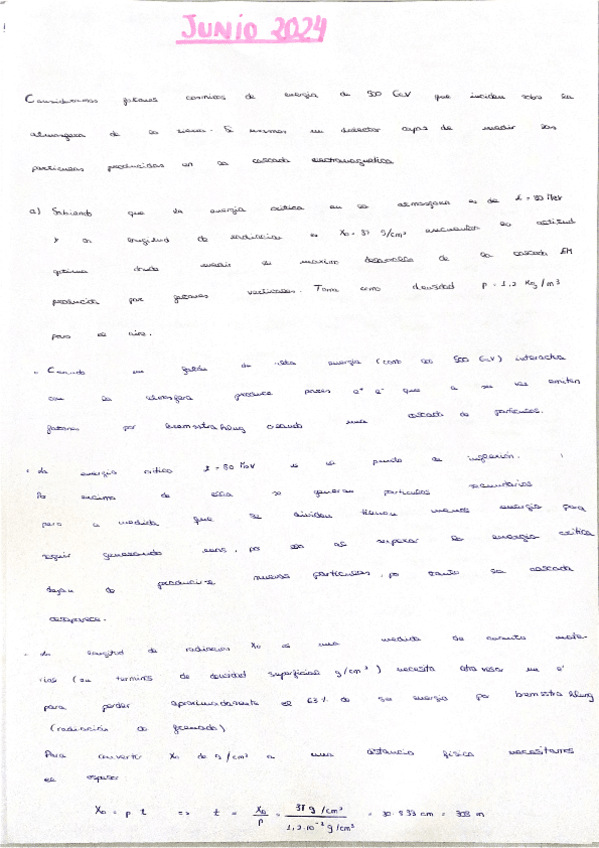 JUNIO 2024
Consideramos fotones cósmicos de energía de 500 GeV que inciden sobre la
atmósfera de la tierra. Si usamos un detector capaz de medir las
partículas producidas en la cascada electromagnética
a) Sabiendo que la energía crítica en la atmósfera es de = 80 MeV
y la longitud de radiación es X₀ = 37 g/cm² la altitud
óptima donde el máximo desarrollo de la cascada EM
producida por fotones verticales. Toma como densidad ρ = 1.2 Kg/m³
para el aire.
. Cuando un fotón de alta energía (como los 500 GeV) interactúa
con la atmósfera produce pares e⁺ e⁻ que a su vez emiten
fotones por bremsstrahlung creando una cascada de partículas.
. La energía crítica = 80 MeV es el punto de inflexión.
Por encima de ella se generan partículas secundarias
pero a medida que se dividen tienen menos energía para
seguir generando, por la energía crítica
dejan de producirse nuevas partículas, por tanto la cascada
desaparece.
. La longitud de radiación X₀ es una medida de cuánto mate-
rial (en términos de densidad superficial g/cm²) necesita atravesar un e⁻
para perder aproximadamente el 63% de su energía por bremsstrahlung
(radiación de frenado)
Para convertir X₀ de g/cm² a una distancia física necesitamos
el espesor
X₀ = ρ t => t = X₀/ρ = 37 g/cm² / 1,2·10⁻³ g/cm³ = 30.833 cm = 308 m